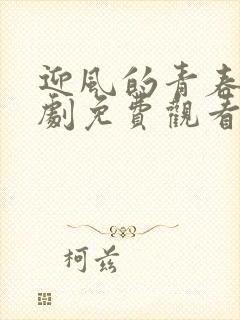 迎风的青春
劇免費觀看
柯兹